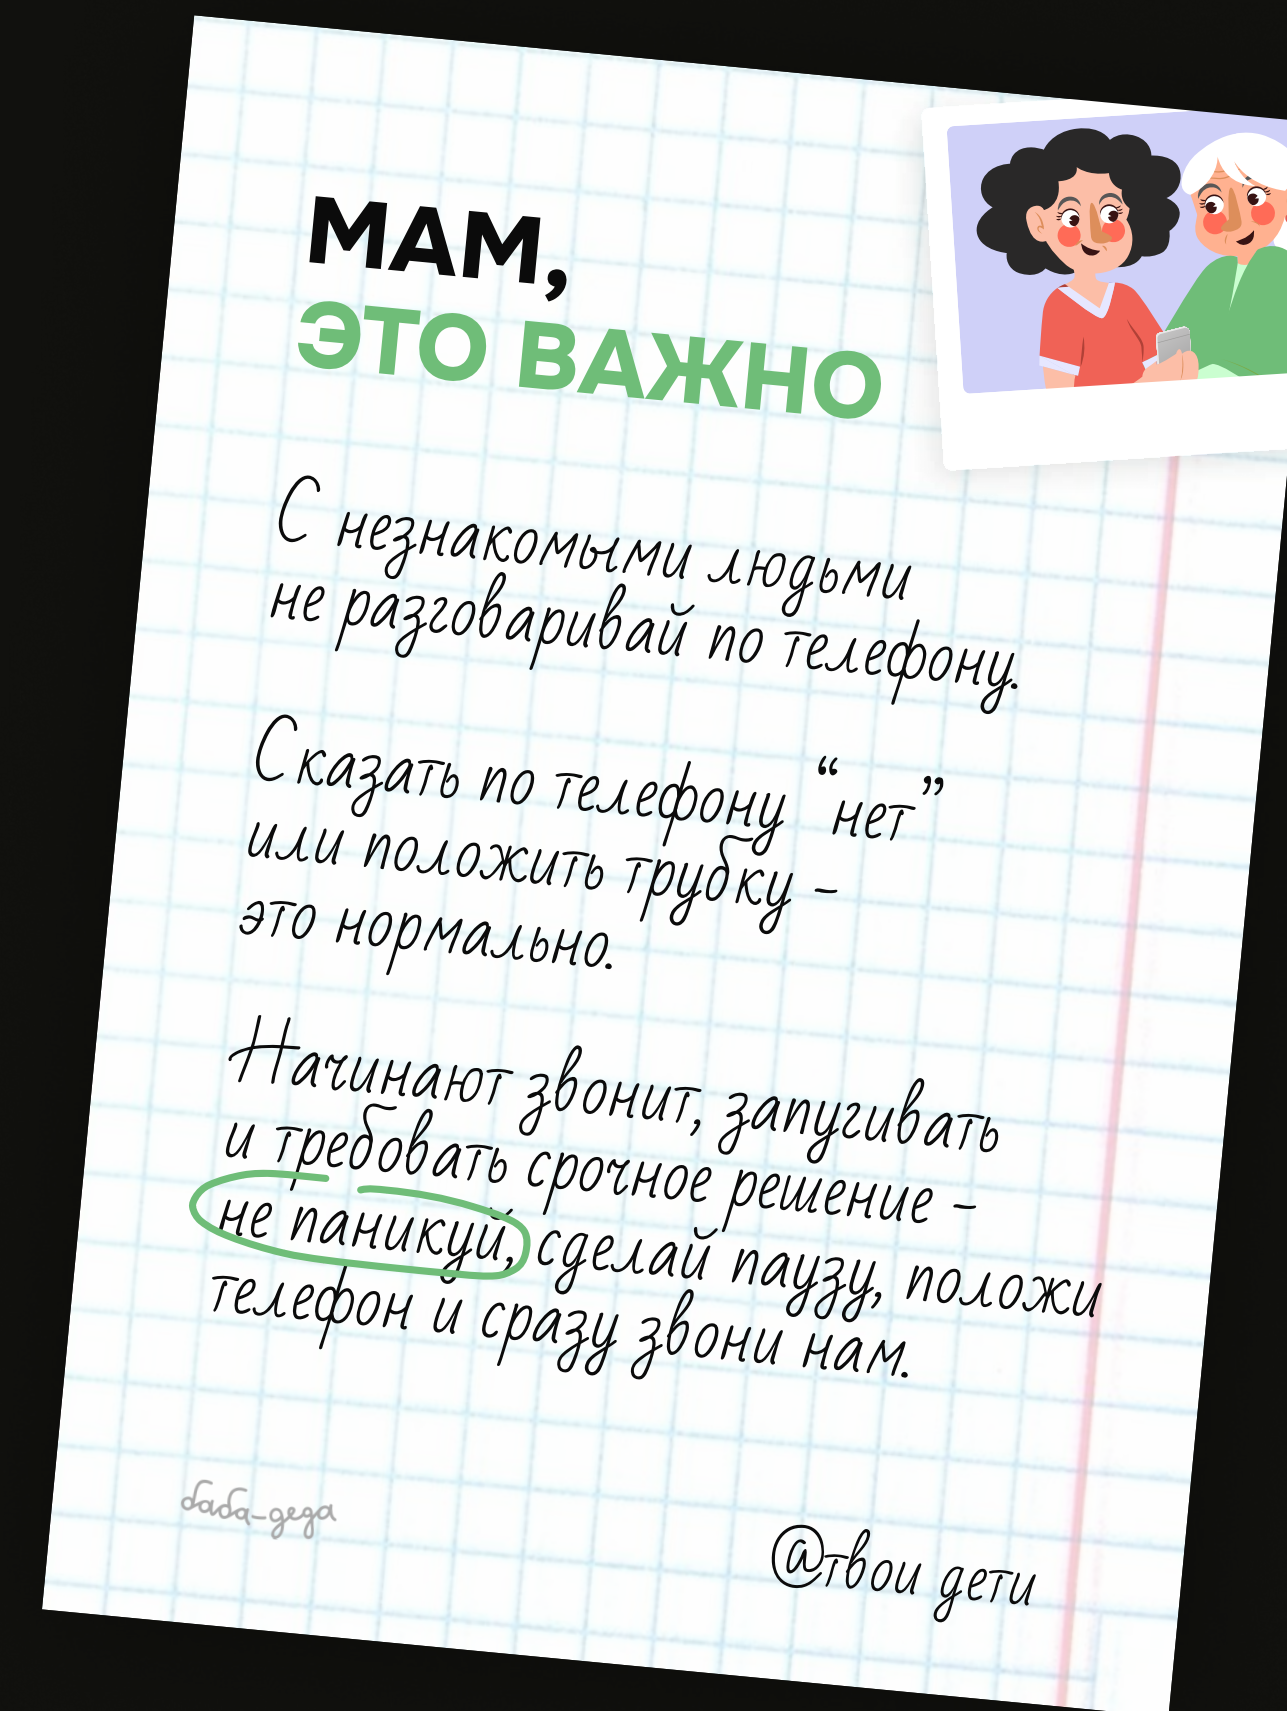 МАМ,
ЭТО ВАЖНО
С незнакомыми людьми
не разговаривай по телефону.
Сказать по телефону “нет”
или положить трубку -
это нормально.
Начинают звонит, запугивать
и требовать срочное решение -
не паникуй, сделай паузу, положи
телефон и сразу звони нам.
баба-деда
@твои дети